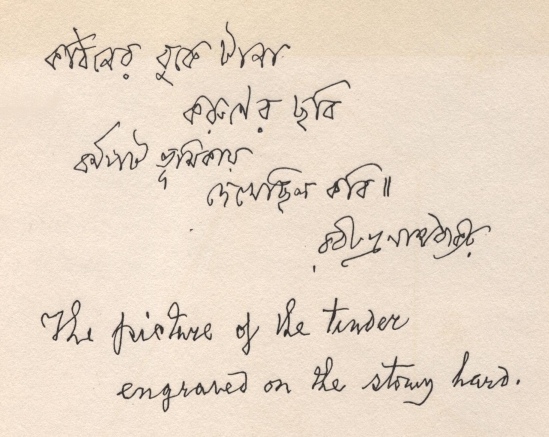 কঠিনের বুকে টানা
করুণের ছবি
ভূমিকায়
দেখেছিল কবি॥
রবীন্দ্রনাথ ঠাকুর
The picture of the tender
engraved on the stony hard.